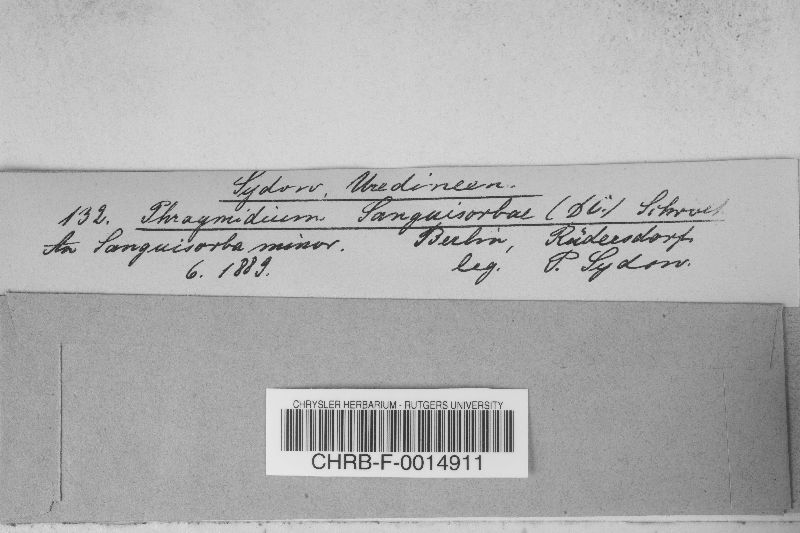 Sydow, Uredineen.
132. Phragmidium Sanguisorbae (DC.) Schroet
An Sanguisorba minor. Berlin, Rüdersdorf
6. 1889. leg. P. Sydow.
CHRYSLER HERBARIUM - RUTGERS UNIVERSITY
CHRB-F-0014911